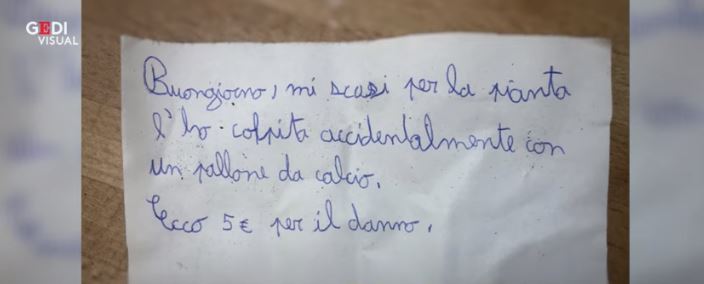 GEDI
VISUAL
Buongiorno, mi scusi per la pianta
l'ho colpita accidentalmente con
un pallone da calcio.
Ecco 5€ per il danno.